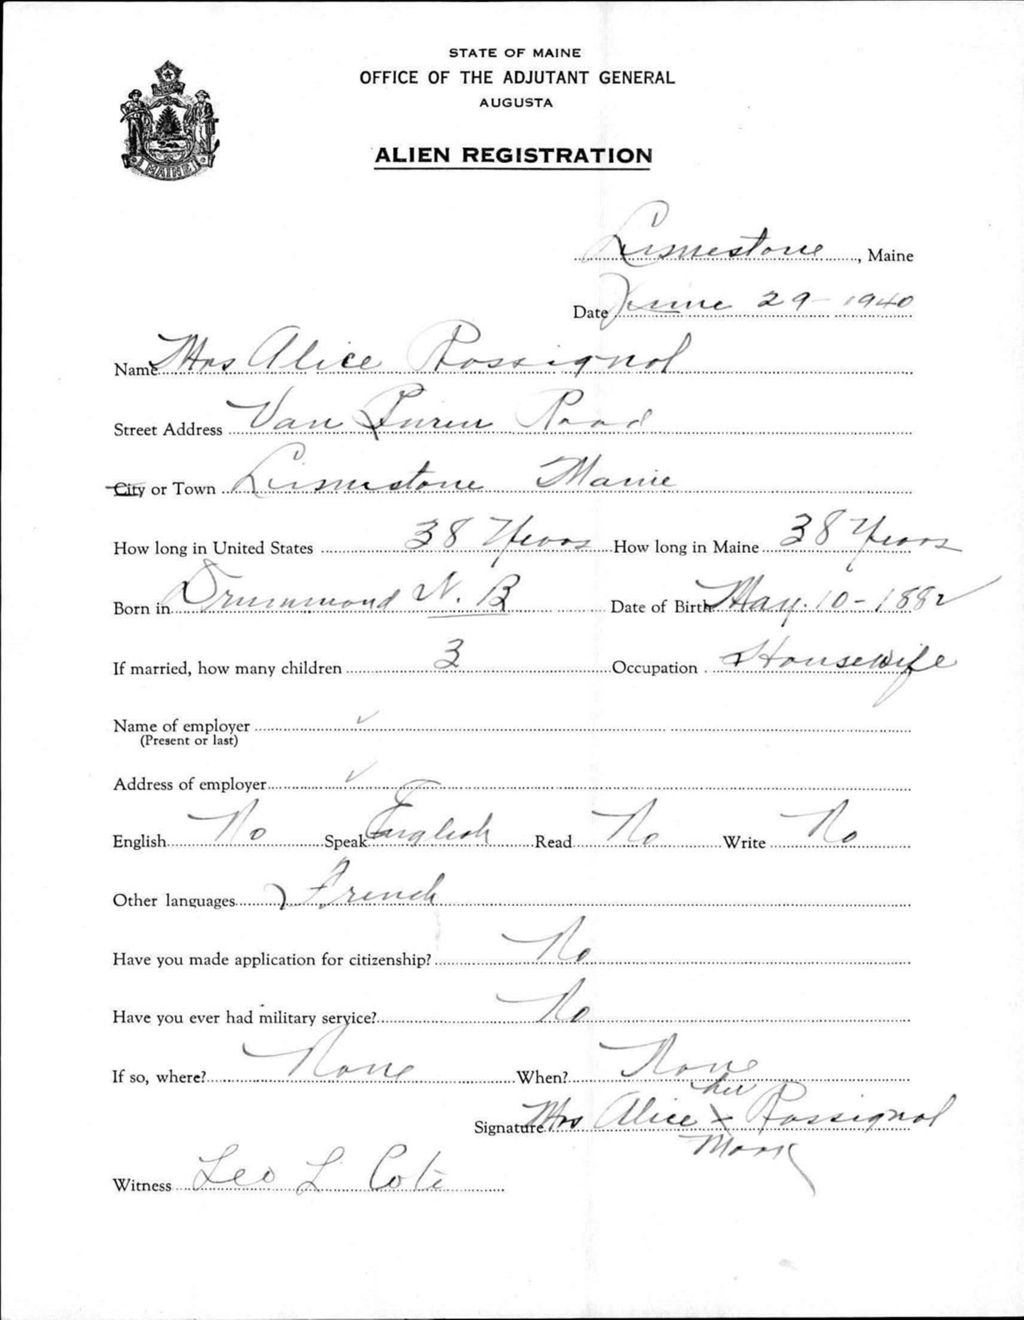 STATE OF MAINE
OFFICE OF THE ADJUTANT GENERAL
AUGUSTA
ALIEN REGISTRATION
MAINE
Limestone, Maine
Date June 29-1940
Name Mrs Alice Rossignol
Street Address Van Buren Road
City or Town Limestone Maine
How long in United States 38 Years How long in Maine 38 Years
Born in Drummond N. B Date of Birth May. 10-1882
If married, how many children 3 Occupation Housewife
Name of employer ✓
(Present or last)
Address of employer ✓
English No Speak English Read No Write No
Other languages French
Have you made application for citizenship? No
Have you ever had military service? No
If so, where? None When? None
her
Signature Mrs Alice X Rossignol
Mark
Witness Leo L. Cote